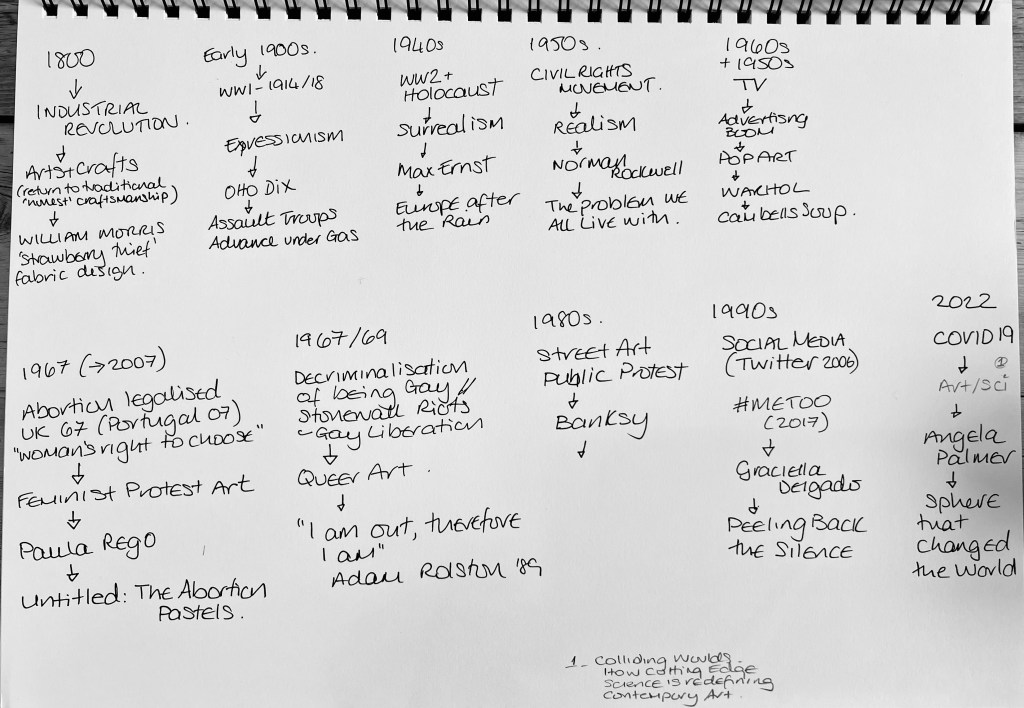 1800
INDUSTRIAL
REVOLUTION.
Arts+Crafts
(return to traditional
'honest' craftsmanship)
WILLIAM MORRIS
'Strawberry thief'
fabric design.
Early 1900s.
WW1-1914/18
Expressionism
Otto Dix
Assault Troops
Advance under Gas
1940s
WW2+
Holocaust
Surrealism
Max Ernst
Europe after
the Rain
1950s.
CIVIL RIGHTS
MOVEMENT.
Realism
Norman
Rockwell
The problem we
All Live with.
1960s
+ 1950s
TV
Advertisng
BOOM
POP ART
WARHOL
Cambells Soup.
1967 (→2007)
Abortion legalised
UK 67 (Portugal 07)
"woman's right to choose"
Feminist Protest Art
Paula Rego
Untitled: The Abortion
Pastels.
1967/69
Decriminalisation
of being Gay //
Stonewall Riots
- Gay Liberation
Queer Art.
"I am out, therefore
I am"
Adam Rolston '89
1980s.
Street Art
Public Protest
Banksy
1990s
SOCIAL MEDIA
(Twitter 2006)
#METOO
(2017)
Graciella
Delgado
Peeling Back
the Silence
2022
COVID19
①
Art/Sci
Angela
Palmer
Sphere
that
changed
the World
1- Colliding Worlds.
How Cutting Edge
Science is redefining
Contempory Art.